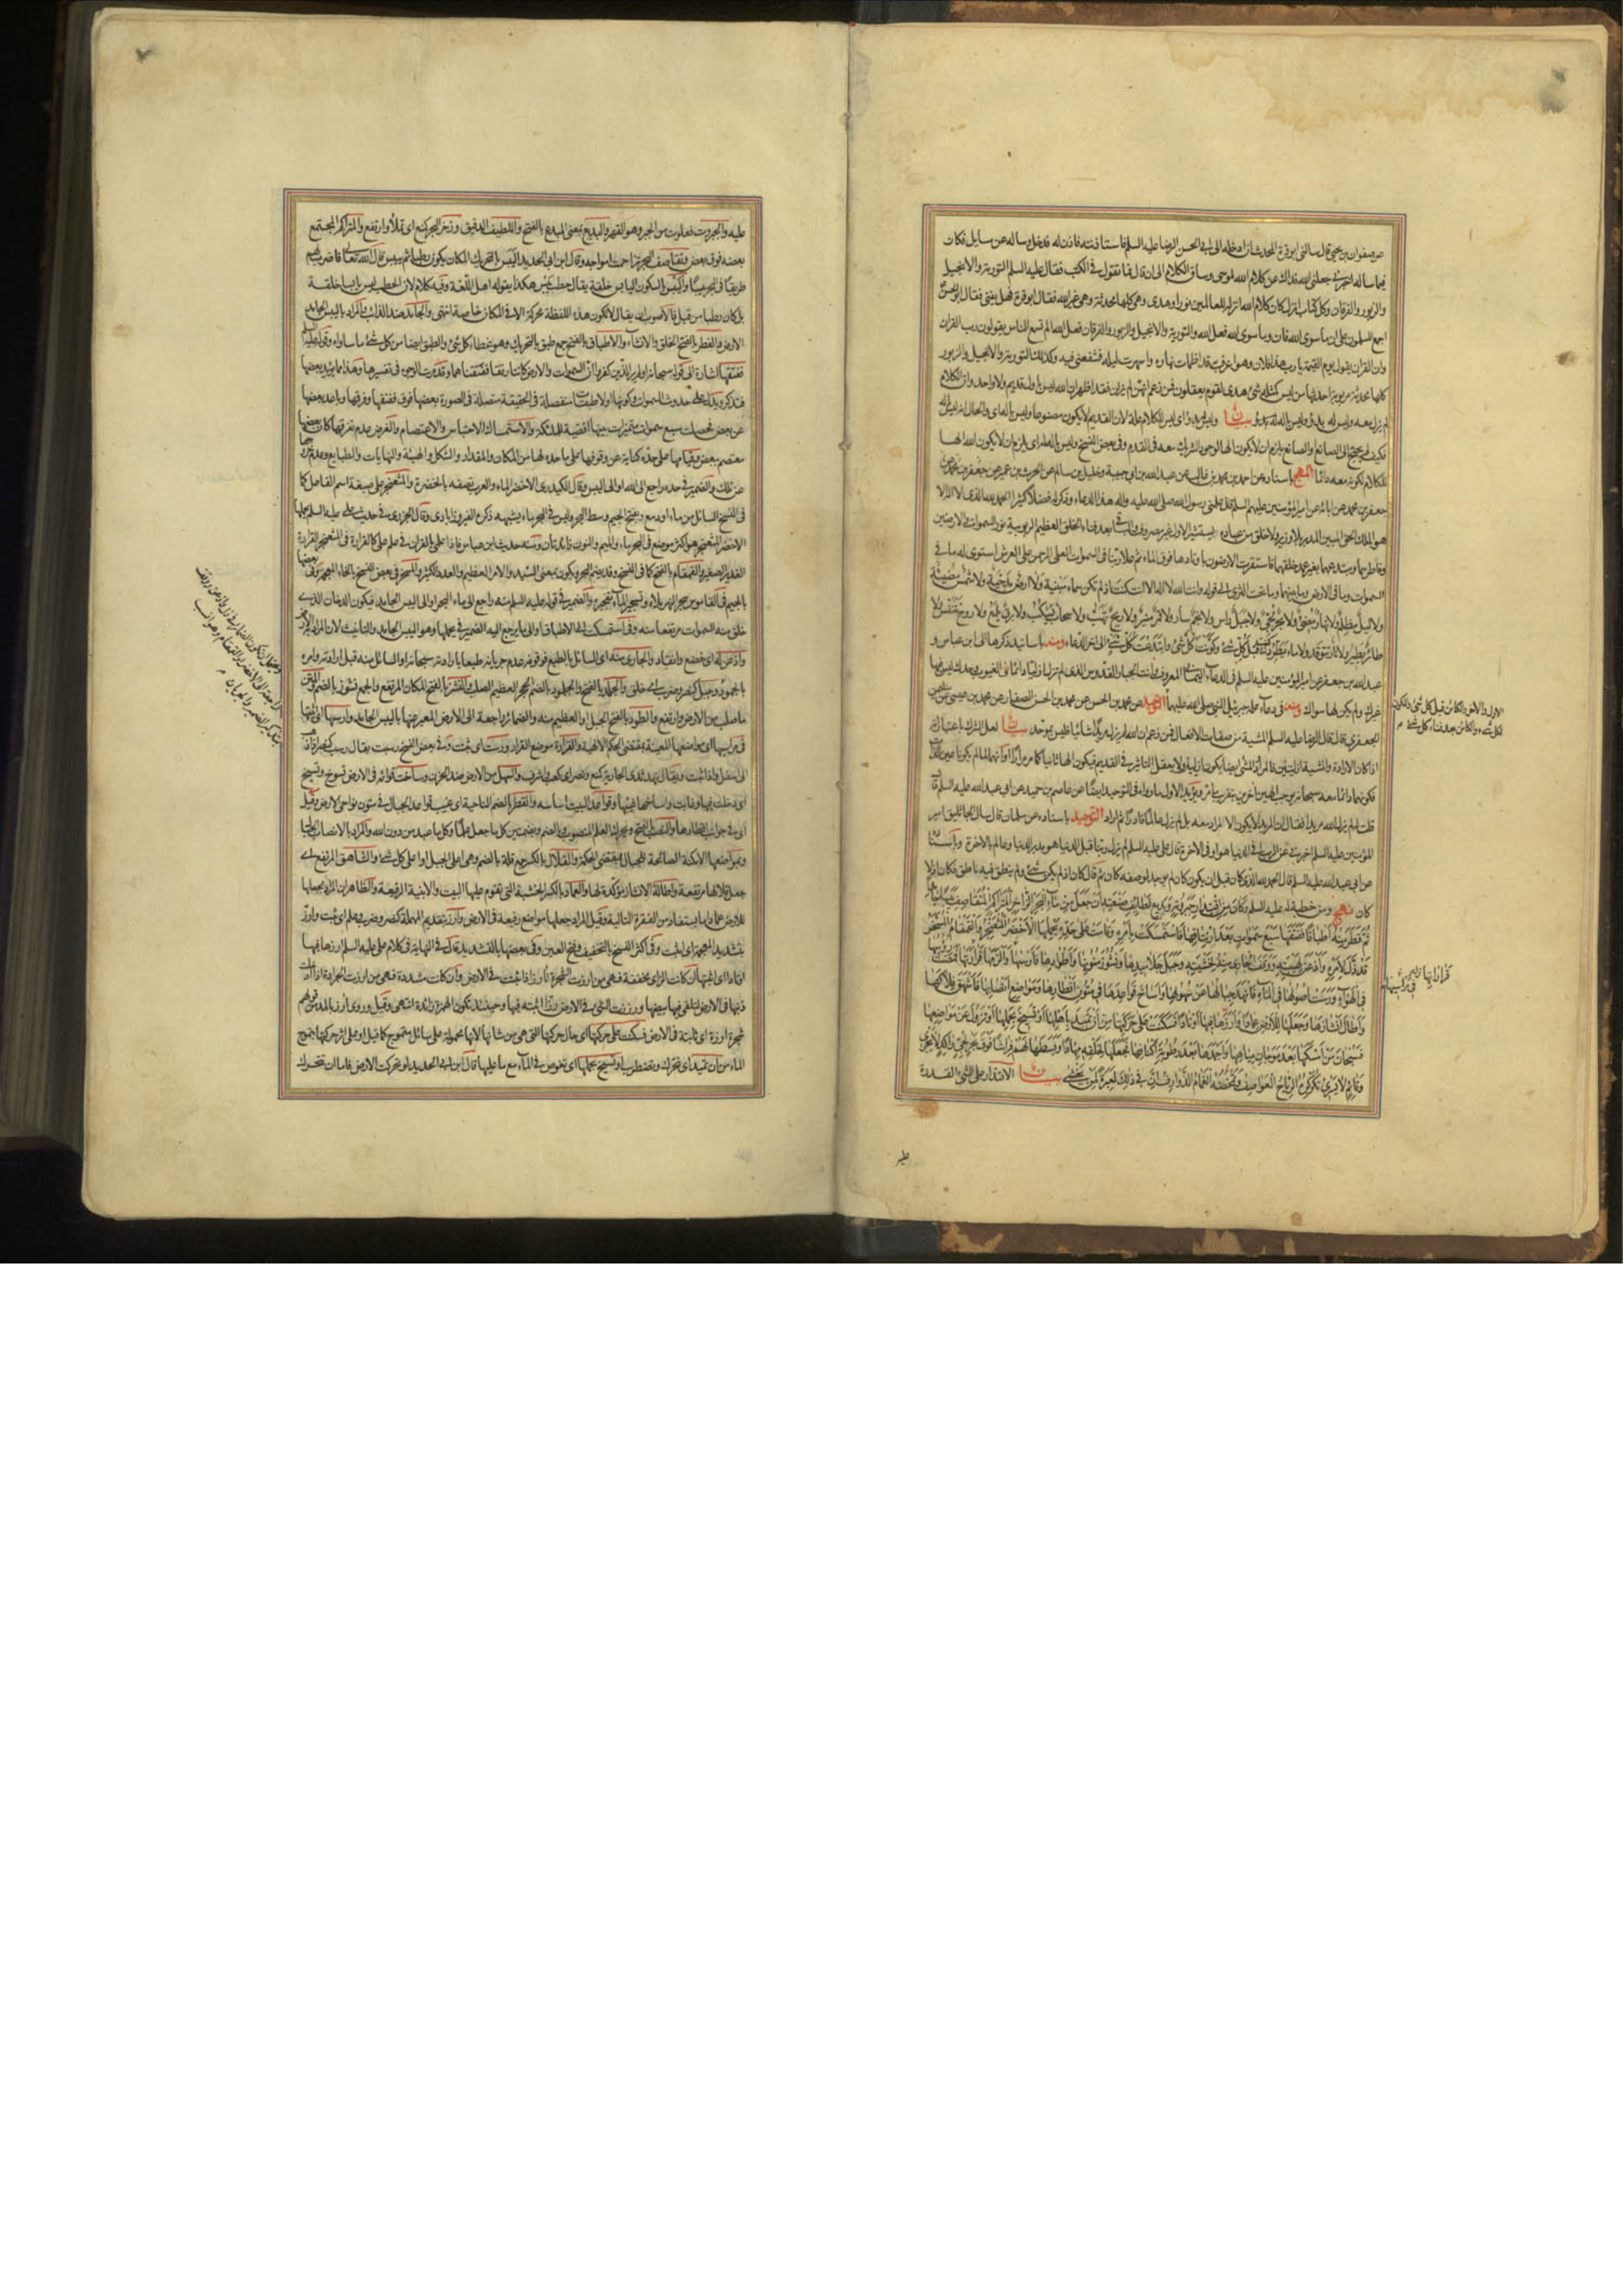 عن صفوان بن يحيى قال سالنى ابو قرة المحدث ان ادخله الى ابى الحسن الرضا عليه السلم فاستاذنته فاذن له فدخل وساله عن مسايل فكان
فيما ساله اخبرنى جعلنى الله فداك عن كلام الله لموسى وساق الكلام الى ان قال فما تقول فى الكتب فقال عليه السلم التورية والانجيل
والزبور والفرقان وكل كتاب انزل كان كلام الله انزله للعالمين نورا وهدى وهى كلها محدثة وهى غير الله فقال ابو قرة فهل يفنى فقال ابو الحسن
اجمع المسلمون على ان ما سوى الله فان وما سوى الله فعل الله والتورية والانجيل والزبور والفرقان فعل الله الم تسمع الناس يقولون رب القران
وان القران يقول يوم القيمة يا رب هذا فلان وهو اعرف به قد اظمات نهاره واسهرت ليله فشفعنى فيه وكذلك التورية والانجيل والزبور
كلها محدثة مربوبة احدثها من ليس كمثله شئ هدى لقوم يعقلون فمن زعم انهن لم يزلن فقد اظهر ان الله ليس باول قديم ولا واحد وان الكلام
لم يزل معه وليس له بدؤ وليس باله بيان وليس له بدؤ اى ليس للكلام علة لان القديم لا يكون مصنوعا وليس باله اى والحال انه ليس باله
فكيف لم يحتج الى الصانع او الصانع يلزم ان لا يكون الها لوجود الشريك معه فى القدم وفى بعض النسخ وليس باله لم اى يلزم ان لا يكون الله الها
للكلام لكونه معه دائما المهج باسناده عن احمد بن محمد بن غالب عن عبد الله بن ابى حبيبة وخليل بن سالم عن الحرث بن عمير عن جعفر بن محمد
جعفر بن محمد عن ابائه عن امير المؤمنين عليهم السلم قال علمنى رسول الله صلى الله عليه واله هذا الدعاء وذكر له فضلا كثيرا الحمد لله الذى لا اله الا
هو الملك الحق المبين المدبر بلا وزير ولا خلق من عباده يستشير الاول غير مصروف والباقى بعد فناء الخلق العظيم الربوبية نور السموات والارضين
وفاطرهما ومبتدعهما بغير عمد خلقهما فاستقرت الارضون باوتادها فوق الماء ثم علا ربنا فى السموات العلى الرحمن على العرش استوى له ما فى
السموات وما فى الارض وما بينهما وما تحت الثرى الى قوله وانت الله لا اله الا انت كنت اذ لم تكن سماء مبنية ولا ارض مدحية ولا شمس مضيئة
ولا ليل مظلم ولا نهار مضئ ولا بحر لجى ولا جبل راس ولا نجم سار ولا قمر منير ولا ريح تهب ولا سحاب يسكب ولا برق يلمع ولا روح تتنفس ولا
طائر يطير ولا نار تتوقد ولا ماء يطرد كنت قبل كل شئ وكونت كل شئ وابتدعت كل شئ الى اخر الدعاء ومنه باسانيد ذكرها الى ابن عباس و
عبد الله بن جعفر عن امير المؤمنين عليه السلم فى الدعاء اليمانى المعروف وانت الجبار القدوس الذى لم تزل ازليا دائما فى الغيوب وحدك ليس فيها
غيرك ولم يكن لها سواك ومنه فى دعاء علمه جبرئيل النبى صلى الله عليهما التوحيد عن محمد بن الحسن عن محمد بن الحسن الصفار عن محمد بن عيسى عن
الجعفرى قال قال الرضا عليه السلم المشية من صفات الافعال فمن زعم ان الله لم يزل مريدا شائيا فليس بموحد بيان لعل الشرك باعتبار انه
اذا كان الارادة والمشية ازليتين فالمراد المشئ ايضا يكونان ازليا ولا يعقل التاثير فى القديم فيكون الها ثانيا كما مر مرارا او انهما لما لم يكونا عين الذات
فكونهما دائما معه سبحانه يوجب الهين اخرين بتقريب ما مر ويؤيد الاول ما رواه فى التوحيد ايضا عن عاصم بن حميد عن ابى عبد الله عليه السلم قال
قلت له لم يزل الله مريدا فقال ان المريد لا يكون الا لمراد معه بل لم يزل عالما قادرا ثم اراد التوحيد باسناده عن سلمان قال سال الجاثليق امير
المؤمنين عليه السلم اخبرنى عن الرب افى الدنيا هو او فى الاخرة قال على عليه السلم لم يزل ربنا قبل الدنيا هو مدبر الدنيا وعالم بالاخرة وباسناده
عن ابى عبد الله عليه السلم قال الحمد لله الذى كان قبل ان يكون كان لم يوجد لوصفه كان ثم قال كان اذ لم يكن شئ ولم ينطق فيه ناطق فكان اذ لا
كان نهج ومن خطبة له عليه السلم وكان من اقتدار جبروته وبديع لطائف صنعته ان جعل من ماء البحر الزاخر المتراكم المتقاصف يبسا جامدا
ثم فطر منه اطباقا ففتقها سبع سموات بعد ارتتاقها فاستمسكت بامره وقامت على حده يحملها الاخضر المثعنجر والقمقام المسخر
قد ذل لامره واذعن لهيبته ووقف الجارى منه لخشيته وجبل جلاميدها ونشوز متونها واطوادها فارسيها فى مراسيها والزمها قرارتها فمضت رؤسها
فى الهواء ورست اصولها فى الماء فانهد جبالها عن سهولها واساخ قواعدها فى متون اقطارها ومواضع انصابها فاشهق قلالها
واطال انشازها وجعلها للارض عمادا وارزها فيها اوتادا فسكنت على حركتها من ان تميد باهلها او تسيخ بحملها او تزول عن مواضعها
فسبحان من امسكها بعد موجان مياهها واجمدها بعد رطوبة اكنافها فجعلها لخلقه مهادا وبسطها لهم فراشا فوق بحر لجى راكد لا يجرى
وقائم لا يسرى تكركره الرياح العواصف وتمخضه الغمام الذوارف ان فى ذلك لعبرة لمن يخشى بيان الاقتدار على الشئ القدرة
عليه
عليه والجبروت فعلوت من الجبر وهو القهر والبديع بمعنى المبدع بالفتح واللطيف الدقيق وزخر البحر كمنع اى تملا وارتفع والمتراكم المجتمع
بعضه فوق بعض وتقاصف البحر تزاحمت امواجه وقال ابن ابى الحديد اليبس بالتحريك المكان يكون رطبا ثم ييبس قال الله تعالى فاضرب لهم
طريقا فى البحر يبسا واليبس بالسكون اليابس خلقة يقال حطب يبس هكذا يقوله اهل اللغة وفيه كلام لان الحطب ليس يابسا خلقة
بل كان رطبا من قبل فالاصوب ان يقال لا تكون هذه اللفظة محركة الا فى المكان خاصة انتهى والجامد ضد الذائب والمراد باليبس الجامد
الارض والفطر بالفتح الخلق والانشاء والاطباق بالفتح جمع طبق بالتحريك وهو غطاء كل شئ والطبق ايضا من كل شئ ما ساواه وقوله عليه السلم
ففتقها اشارة الى قوله سبحانه اولم ير الذين كفروا ان السموات والارض كانتا رتقا ففتقناهما وقد مرت الوجوه فى تفسيرها وهذا مما يؤيد بعضها
فتذكر ويدل على حدوث السموات وكونها اولا طبقات منفصلة فى الحقيقة متصلة فى الصورة بعضها فوق بعض ففتقها وفرقها وباعد بعضها
عن بعض فحصلت سبع سموات متميزات بينها افضية للملائكة والاستمساك الاحتباس والاعتصام والغرض عدم تفرقها كان بعضها
معتصم ببعض وقيامها على حده كناية عن وقوفها على ما حده لها من المكان والمقدار والشكل والهيئة والنهايات والطبايع وعدم خروجها
عن ذلك والضمير فى حده راجع الى الله او الى اليبس وقال الكيدرى الاخضر الماء والعرب تصفه بالخضرة والمثعنجر على صيغة اسم الفاعل كما
فى النسخ السائل من ماء او دمع وبفتح الجيم وسط البحر وليس فى البحر ماء يشبهه ذكره الفيروزابادى وقال الجزرى فى حديث على عليه السلم يحملها
الاخضر المثعنجر هو اكثر موضع فى البحر ماء والميم والنون زائدتان ومنه حديث ابن عباس فاذا علمى بالقران فى علم على كالقرارة فى المثعنجر القرارة
الغدير الصغير والقمقام بالفتح كما فى النسخ وقد يضم البحر ويكون بمعنى السيد والامر العظيم والعدد الكثير والمسخر فى بعض النسخ بالخاء المعجمة وفى بعضها
بالجيم فى القاموس سجر النهر ملاه وتسجير الماء تفجيره والضمير فى قوله عليه السلم منه راجع الى ماء البحر او الى اليبس الجامد فيكون الدخان الذى
خلق منه السموات مرتفعا منه وفى استمسكت الى الاطباق او الى ما يرجع اليه الضمير فى يحملها وهو اليبس الجامد والتانيث لان المراد به الارض
واذعن له اى خضع وانقاد والجارى منه اى السائل بالطبع فوقوفه عدم جريانه طبعا بارادته سبحانه او السائل منه قبل ارادته وامره
بالجمود وجبل كنصر وضرب اى خلق والجلمد بالفتح والجلمود بالضم الحجر العظيم الصلب والنشز بالفتح المكان المرتفع والجمع نشوز بالضم والمتن
ما صلب من الارض وارتفع والطود بالفتح الجبل او العظيم منه والضمائر راجعة الى الارض المعبر عنها باليبس الجامد وارسيها اى اثبتها
فى مراسيها اى مواضعها المعينة بمقتضى الحكمة الالهية والقرارة موضع القرار ورست اى ثبتت وفى بعض النسخ رسبت يقال رسب كنصر اذا ذهب
الى اسفل واذا ثبت ويقال نهد ثدى الجارية كمنع ونصر اى كعب واشرف والسهل من الارض ضد الحزن وساخت قوائمه فى الارض تسوخ وتسيخ
اى دخلت فيها وغابت واساخها غيبها وقواعد البيت اساسه والقطر بالضم الناحية اى غيب قواعد الجبال فى متون نواحى الارض وقيل
اى فى جوانب اقطارها والنصب بالفتح ويحرك العلم المنصوب وبالضم وبضمتين كل ما جعل علما وكل ما عبد من دون الله والمراد بالانصاب الجبال
وبمواضعها الامكنة الصالحة للجبال بمقتضى الحكمة والقلال بالكسر جمع قلة بالضم وهى اعلى الجبل او اعلى كل شئ والشاهق المرتفع اى
جعل قلالها مرتفعة واطالة الانشاز مؤكدة لها والعماد بالكسر الخشبة التى تقوم عليها البيت والابنية الرفيعة والظاهر ان المراد بجعلها
للارض عمادا ما يستفاد من الفقرة التالية وقيل المراد جعلها مواضع رفيعة فى الارض وارز بتقديم المهملة كنصر وضرب وعلم اى ثبت وارز
بتشديد المعجمة اى اثبت وفى اكثر النسخ بالتخفيف وفتح العين وفى بعضها بالتشديد قال فى النهاية فى كلام على عليه السلم ارزها فيها
اوتادا اى اثبتها ان كانت الزاى مخففة فهى من ارزت الشجرة تارز اذا ثبتت فى الارض وان كانت مشددة فهى من ارزت الجرادة اذا ادخلت
ذنبها فى الارض لتلقى فيها بيضها ورززت الشئ فى الارض رزا اثبته فيها وحينئذ تكون الهمزة زائدة انتهى وقيل وروى ارز بالمد من قولهم
شجرة ارزة اى ثابتة فى الارض فسكنت على حركتها اى حال حركتها التى هى من شانها لانها محمولة على سائل متموج كما قيل او على اثر حركتها بتموج
الماء من ان تميد اى تتحرك وتضطرب او تسيخ بحملها اى تغوص فى الماء مع ما عليها قال ابن ابى الحديد لو تحركت الارض فاما ان تتحرك